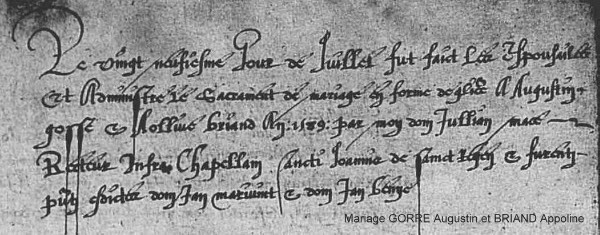 Le vingt neufiesme Jour de Juillet fut faict les Espousailles
Et Administre le Sacrament de mariage en forme de A Augustin
gorre & Apolline briand An: 1589: par moy dom Jullian mace
Recteur Infra Chapellain Sancti Joannis de sanct & furent
dom Jan & dom Jan
Mariage GORRE Augustin et BRIAND Appoline